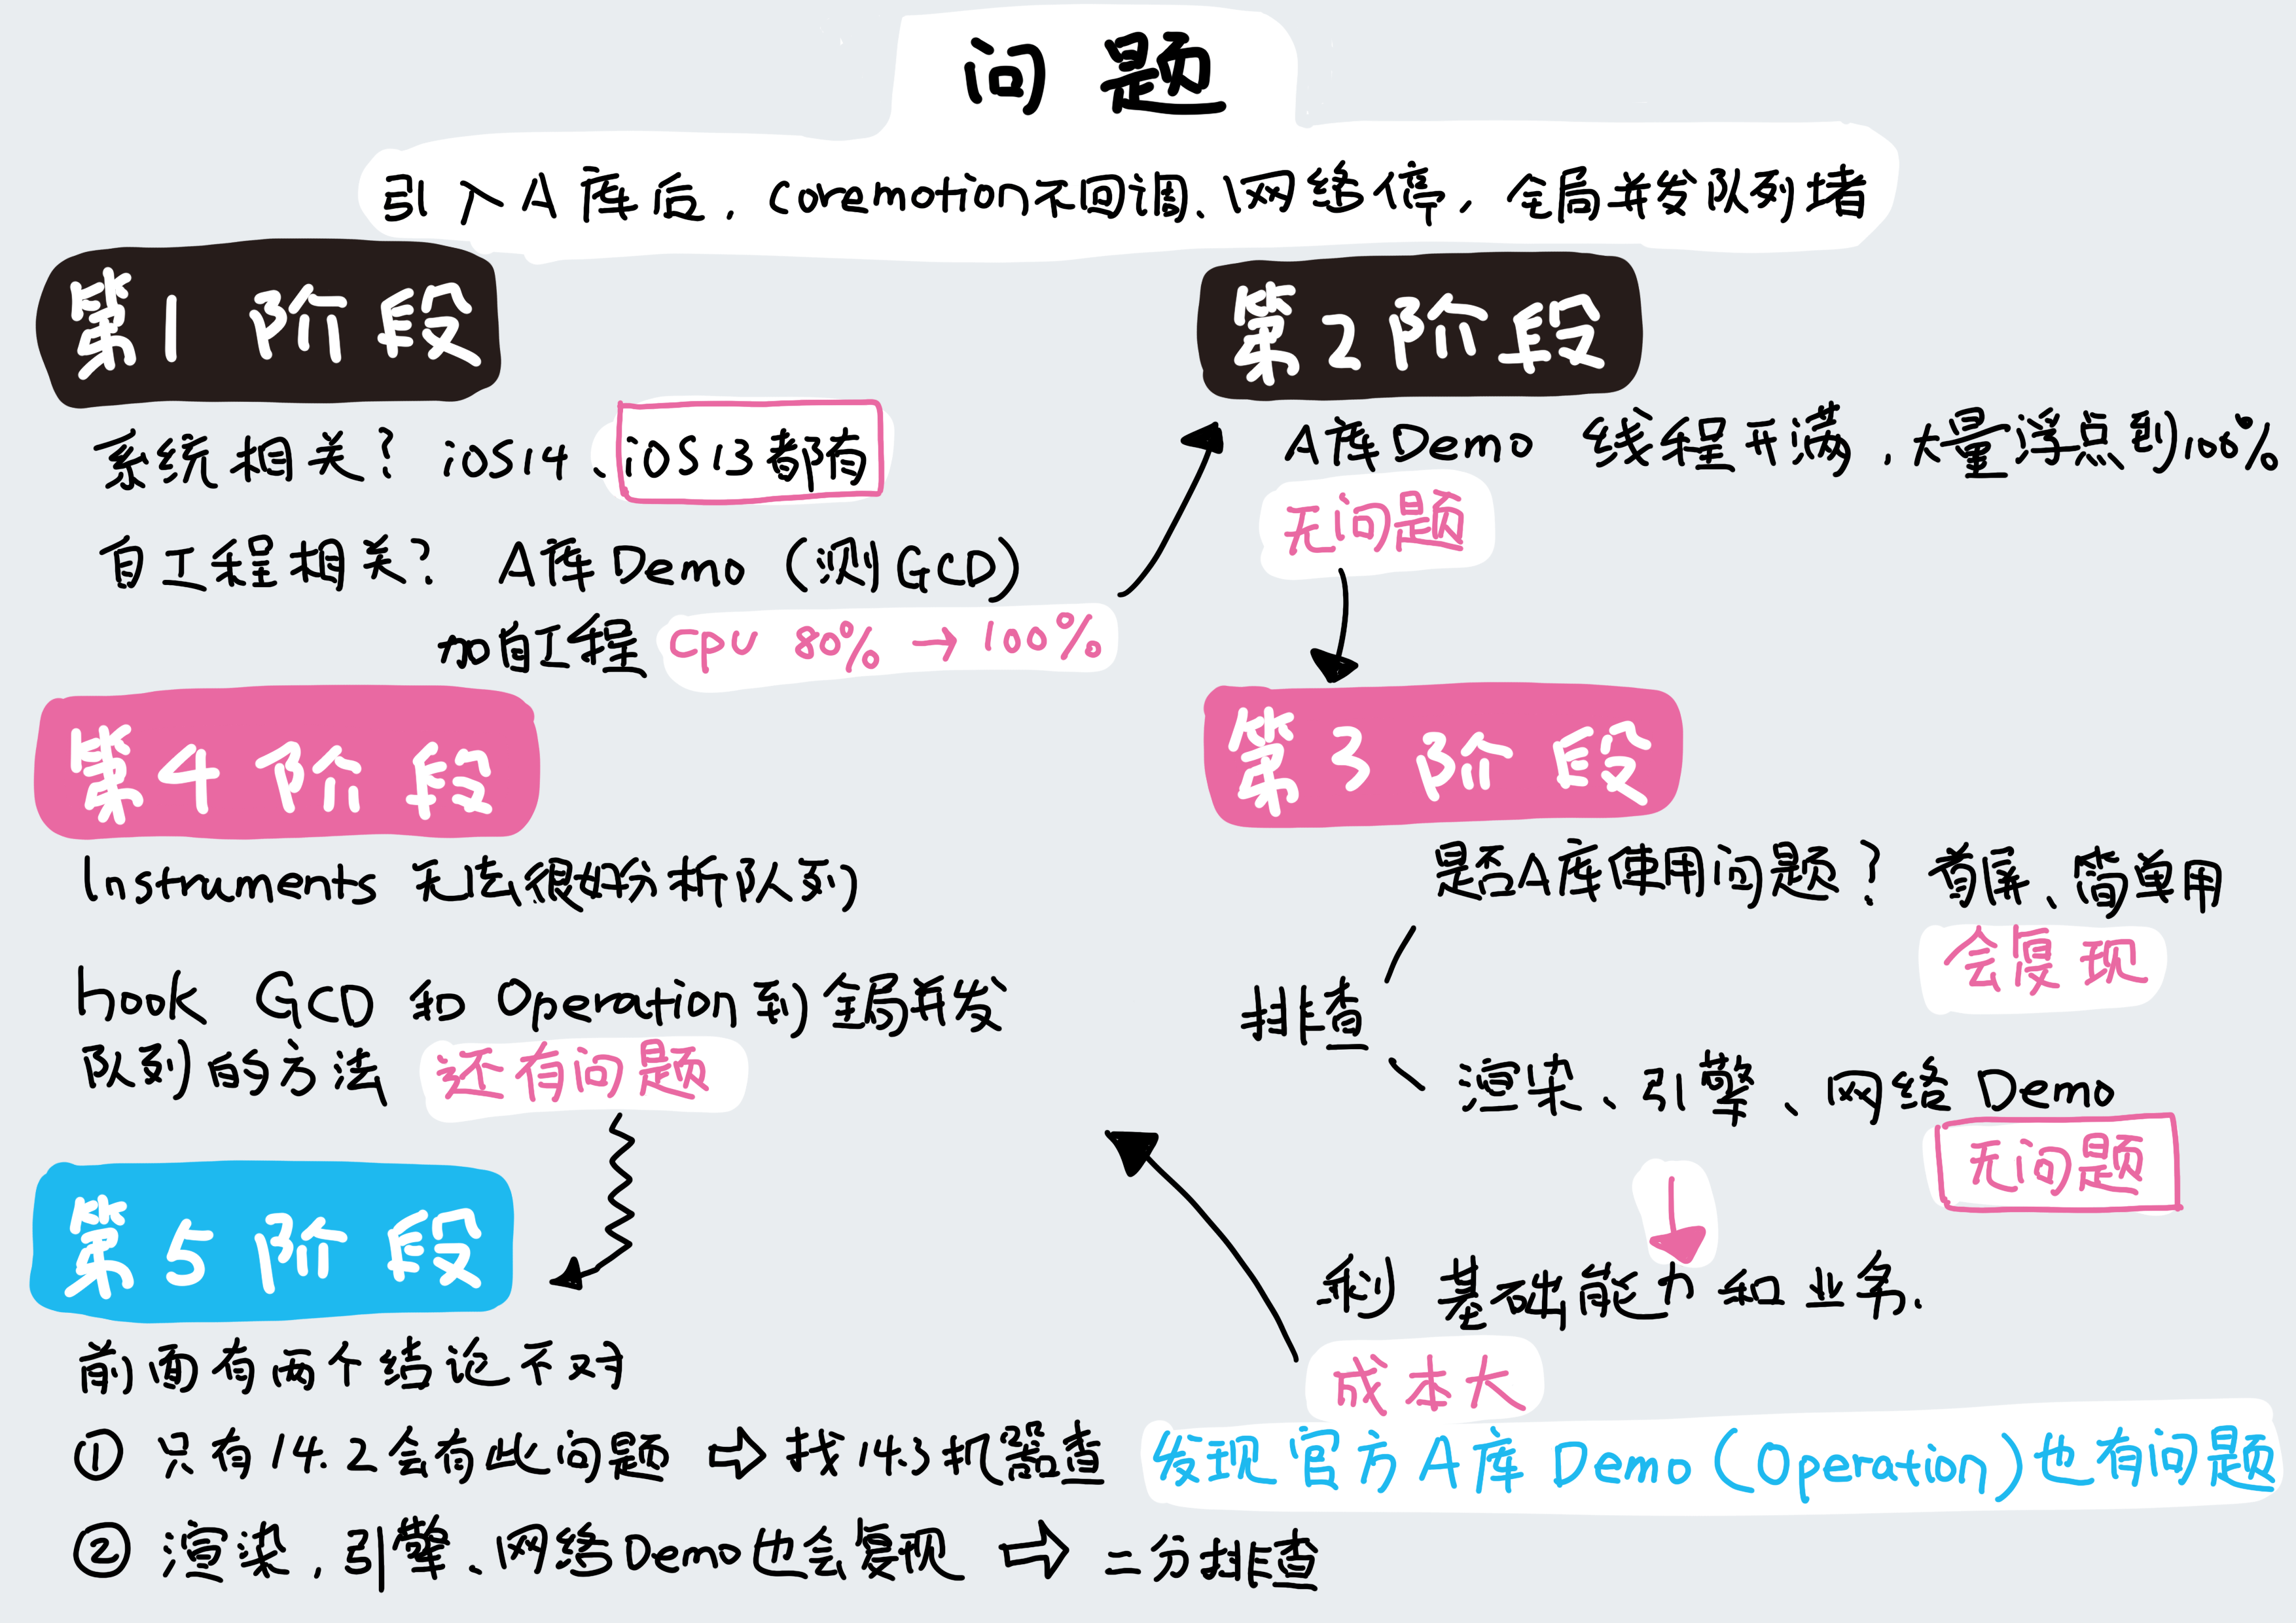 问题
引入A库后，coremotion不回调、网络停，全局并发队列堵
第1阶段
系统相关？iOS14、iOS13都有
自工程相关？ A库Demo（测GCD）
加自工程 cpu 80% → 100%
第2阶段
A库Demo 线程开满，大量浮点到100%
无问题
第3阶段
是否A库使用问题？ 首屏、简单用
会复现
排查
渲染、引擎、网络 Demo
无问题
剩 基础能力和业务.
成本大
第4阶段
Instruments 无法很好分析队列
hook GCD 和 Operation到全局并发
队列的方法 还有问题
第5阶段
前面有两个结论不对
① 只有14.2会有此问题 ⇨ 找14.3机器查 发现官方A库 Demo（Operation）也有问题
② 渲染，引擎、网络Demo也会复现 ⇨ 二分排查